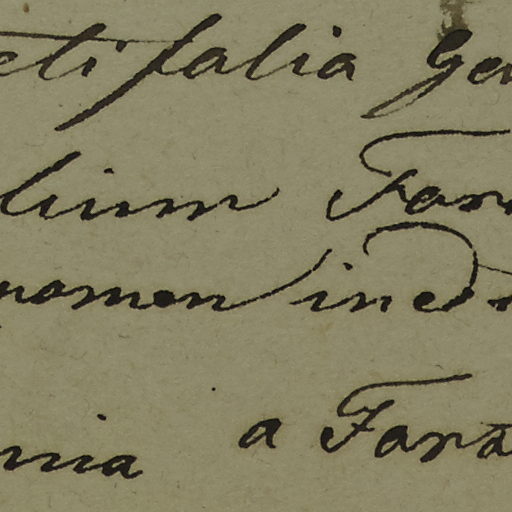 etifolia Ge
lium Fan
nomen ined
nia a Fan